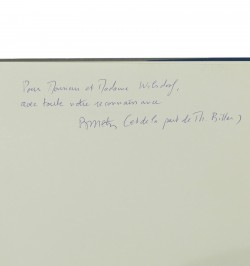 Pour Monsieur et Madame Wilsdorf,
avec toute notre reconnaissance.
(et de la part de Th. Bitter)